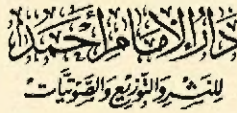 دَارُ الْإِمَامِ أَحْمَدَ
لِلنَّشْرِ وَالتَّوْزِيعِ وَالصَّوْتِيَّاتِ